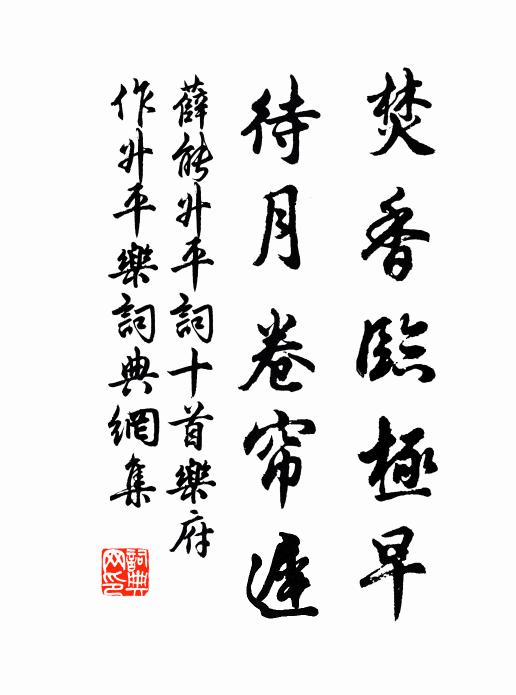 焚香臨極早
待月卷帘遲
薛能升平詞十首樂府
作升平樂詞典網集
詞典
网印